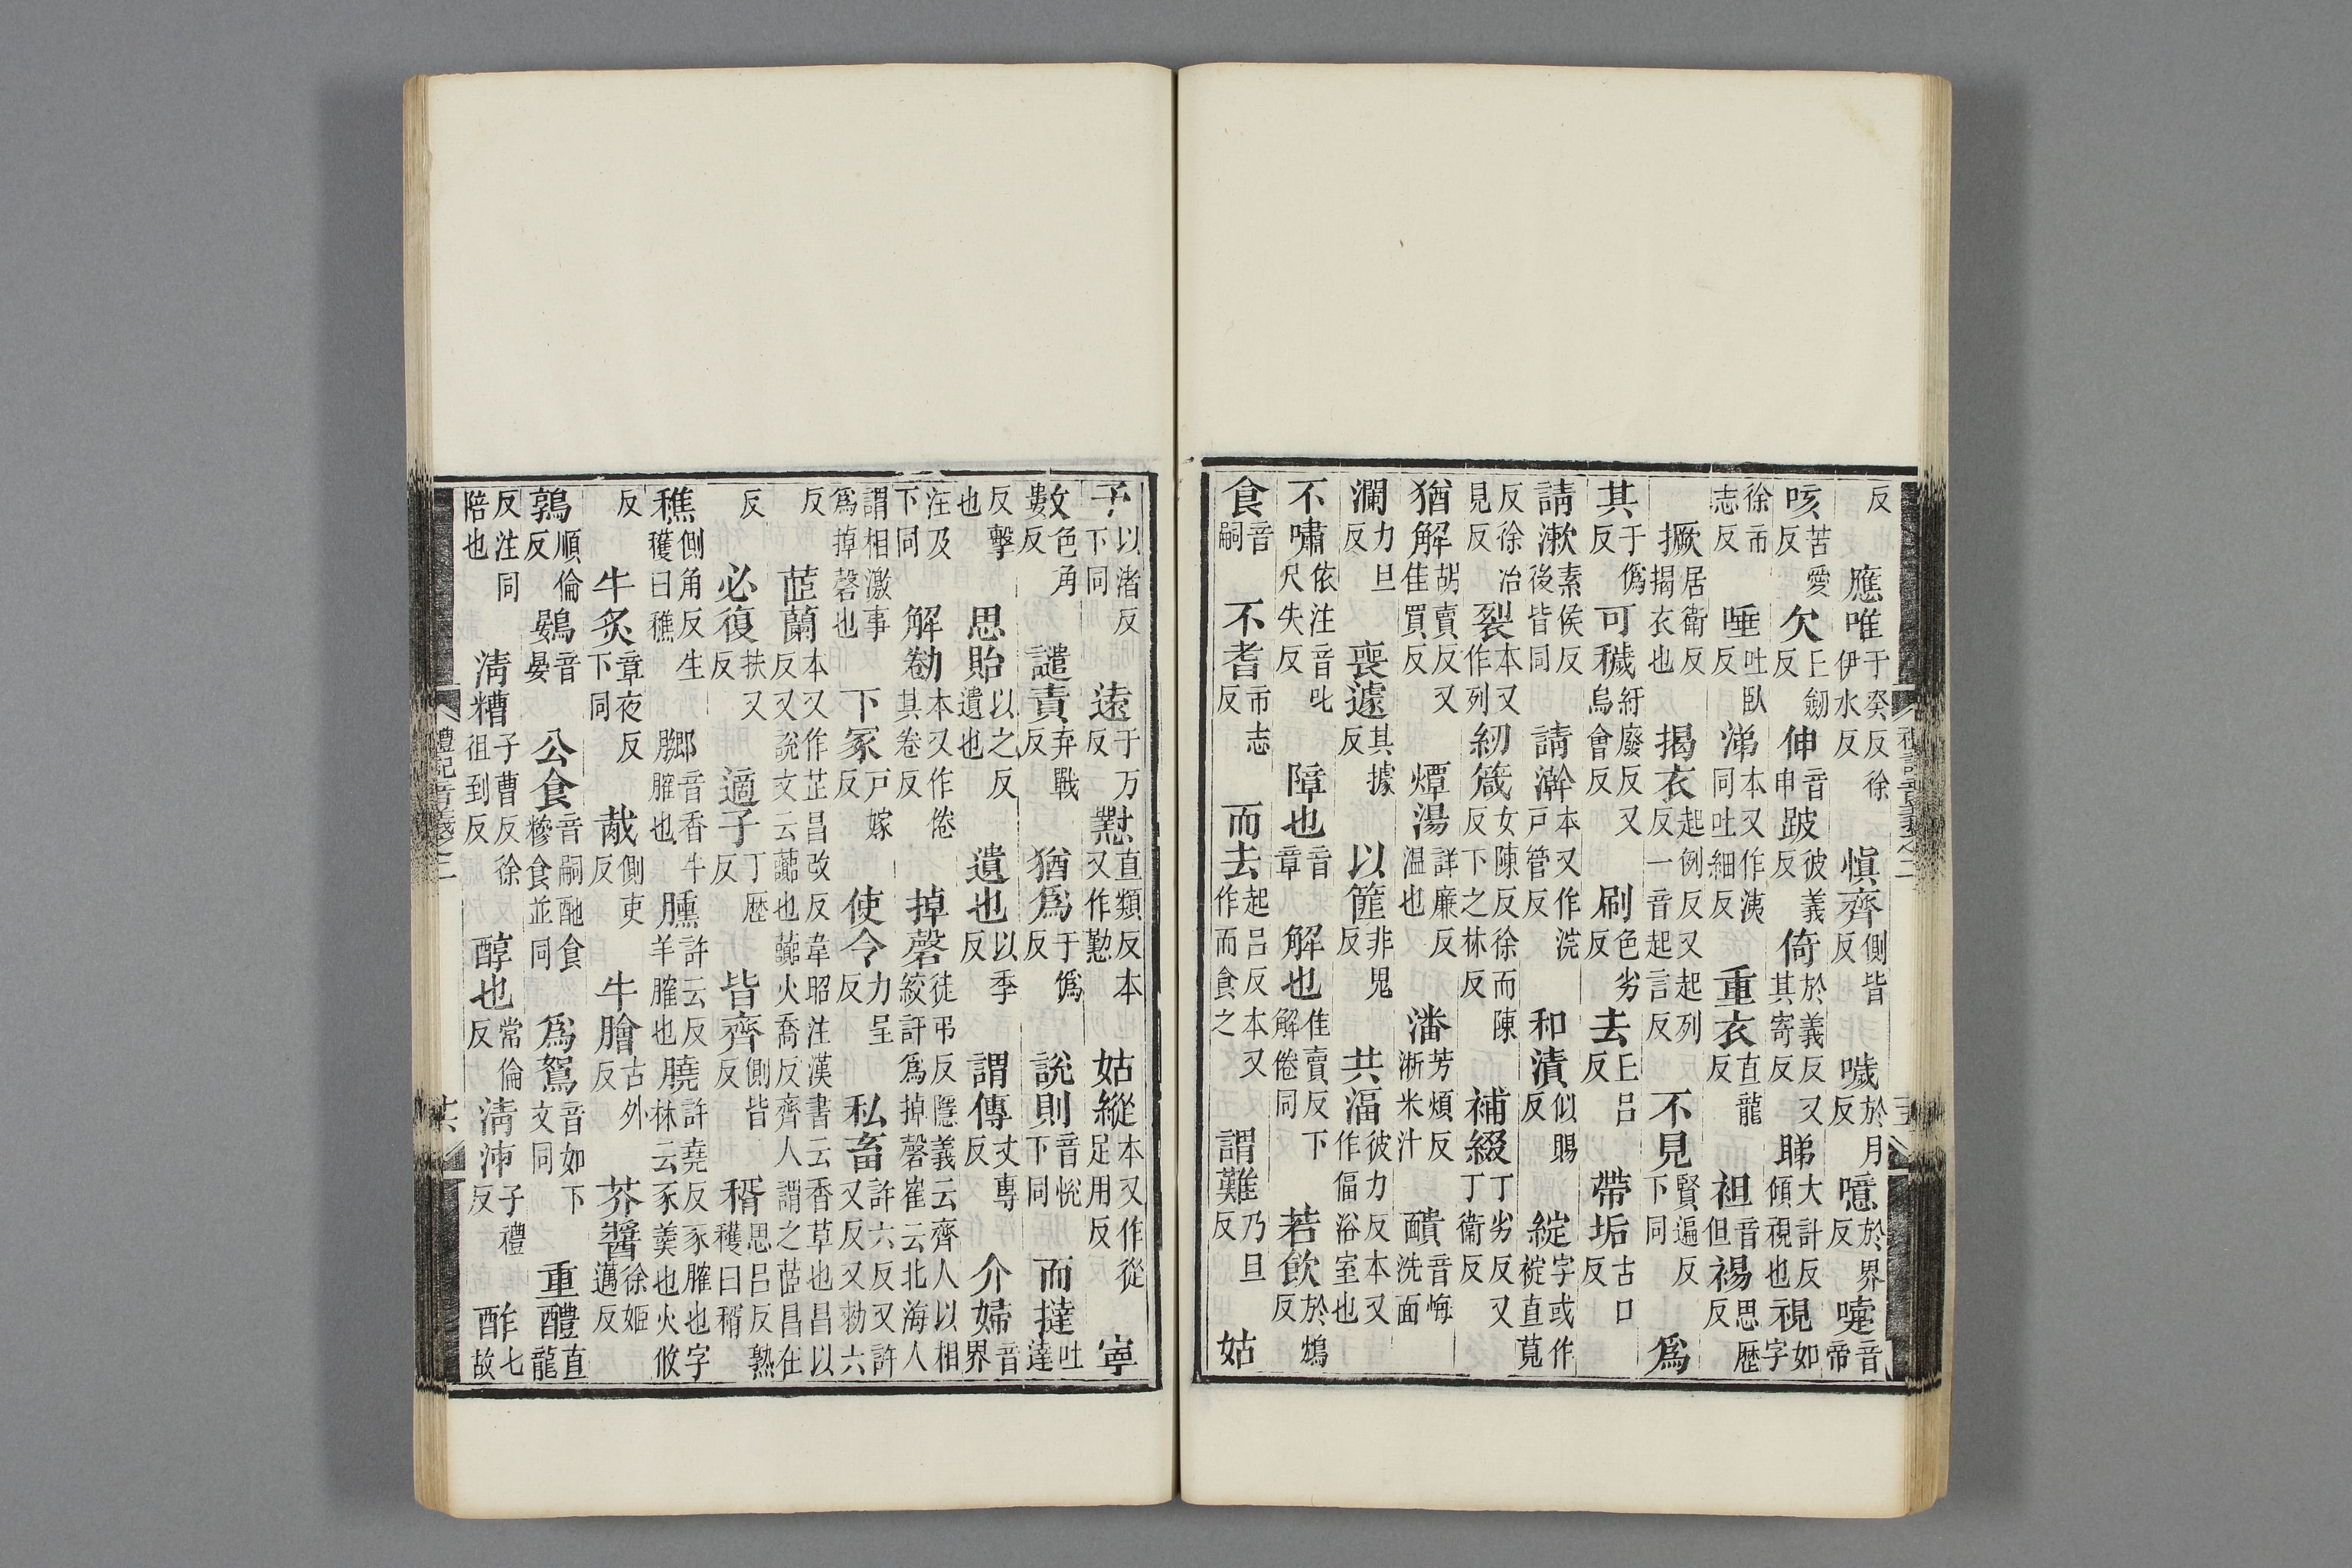 禮記音義之二
反應唯于癸反徐伊水反慎齊側皆反噦於月反噫於界反嚏音帝
咳苦愛反欠丘劒反伸音申跛彼義反倚於義反又其寄反睇大計反傾視也視如字
徐市志反唾吐臥反涕本又作洟同吐細反重衣直龍反袒音但裼思歷反
撅居衛反揭衣也揭衣起例反又起列反一音起言反不見賢遍反下同爲
其于僞反可穢紆廢反又烏會反刷色劣反去丘呂反帶垢古口反
請漱素侯反後皆同請澣本又作浣戶管反和漬似賜反綻字或作䘺直莧反
反徐冶見反裂本又作列紉箴女陳反徐而陳反下之林反補綴丁劣反又丁衛反
猶解胡賣反又佳買反燂湯詳廉反温也潘芳煩反淅米汁靧音悔洗面
瀾力旦反喪遽其據反以篚非鬼反共湢彼力反本又作偪浴室也
不嘯依注音叱尺失反障也音章解也佳賣反下解倦同若飲於鴆反
食音嗣不耆市志反而去起呂反本又作而食之謂難乃旦反姑
予以渚反下同遠于万反懟直類反本又作懃姑縱本又作從足用反寧
數色角反譴責弃戰反猶爲于僞反說則音悅下同而撻吐達
反擊也思貽以之反遺也遺也以季反謂傳丈專反介婦音界
注及下同解勌本又作倦其卷反掉磬徒弔反隱義云齊人以相絞訐爲掉磬崔云北海人
謂相激事爲掉磬也下冢戶嫁反使令力呈反私畜許六反又許又反又勑六
反茝蘭本又作芷昌改反韋昭注漢書云香草也昌以反又說文云虈也虈火喬反齊人謂之茝昌在
反必復扶又反適子丁歷反皆齊側皆反稰思呂反熟穫曰稰
穛側角反生穫曰穛膷音香牛臛也臐許云反羊臛也膮許堯反豕臛也字林云豕羹也火攸
反牛炙章夜反下同胾側吏反牛膾古外反芥醬徐姬邁反
鶉順倫反鷃音晏公食音嗣酏食糝食並同爲鴽音如下文同重醴直龍
反注同陪也清糟子曹反徐徂到反醇也常倫反清泲子禮反酢七故
禮記音義之二